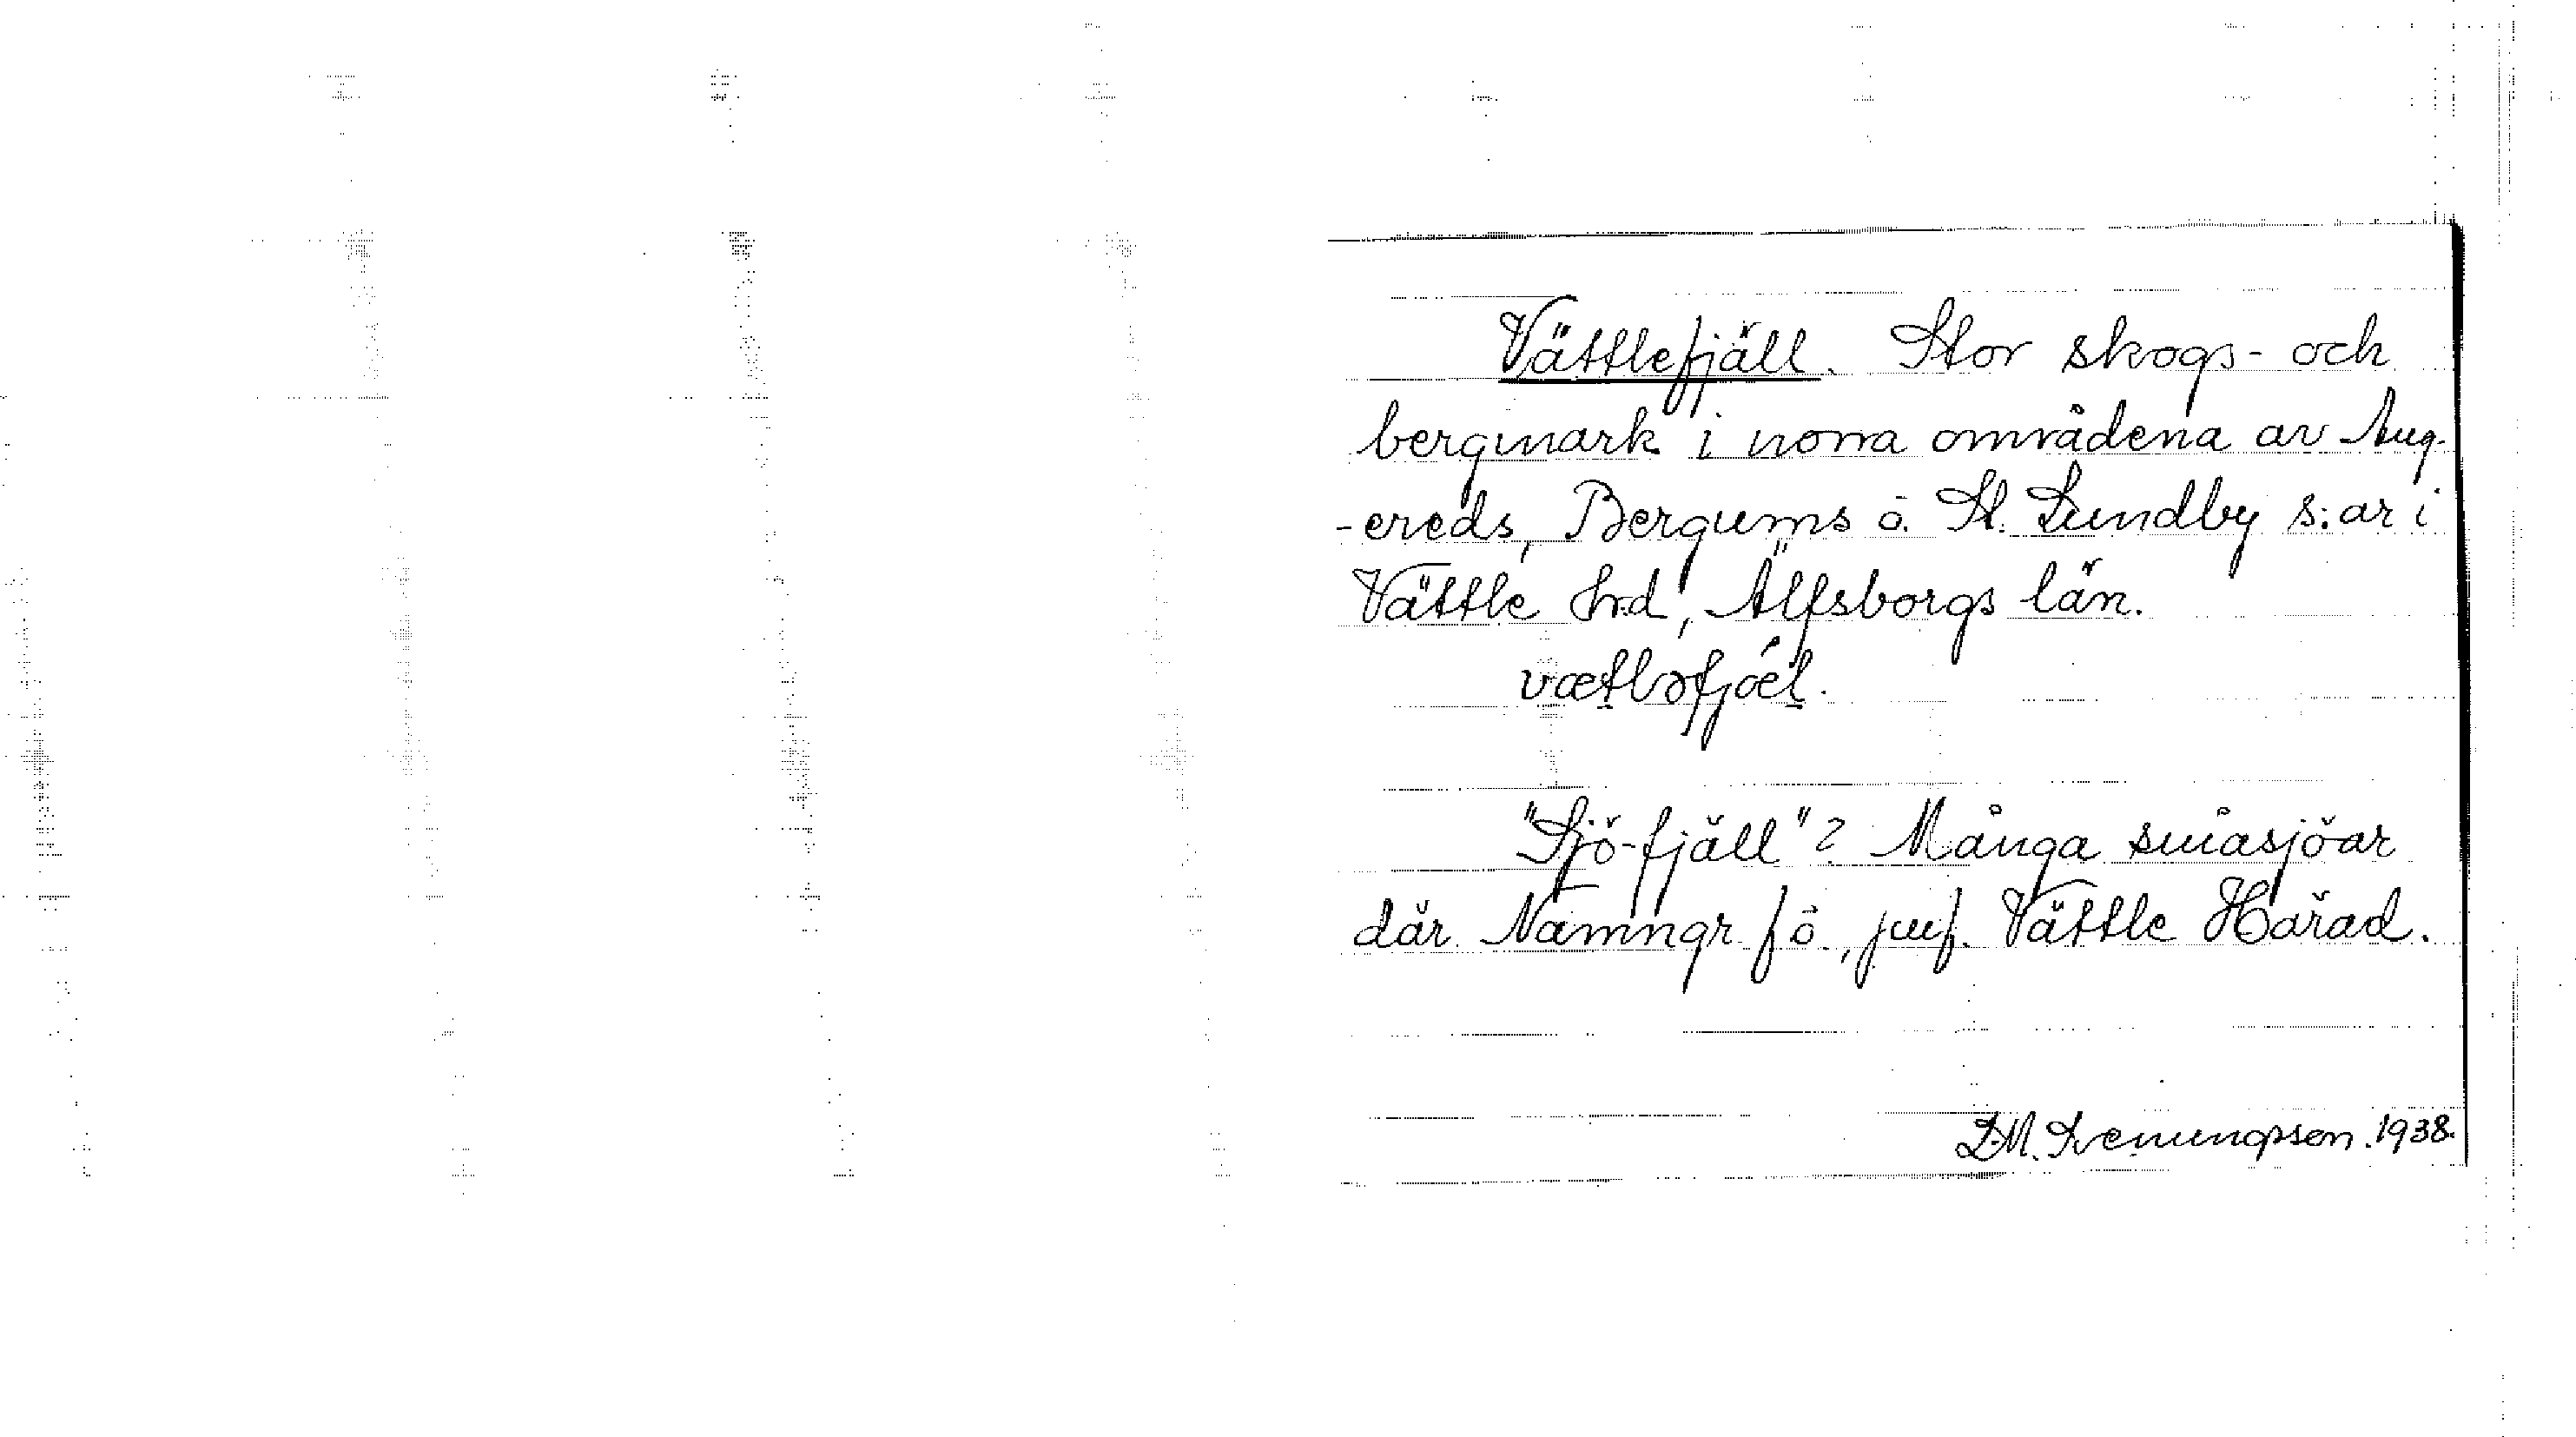 Vättlefjäll. Stor skogs- och
bergmark i norra områdena av Ang-
-ereds, Bergums o. St. Lundby s:ar i
Vättle h:d, Älfsborgs län.
vætləfjæl.
"Sjö-fjäll"? Många småsjöar
där. Namngr. fö., jmf. Vättle Härad.
1938.